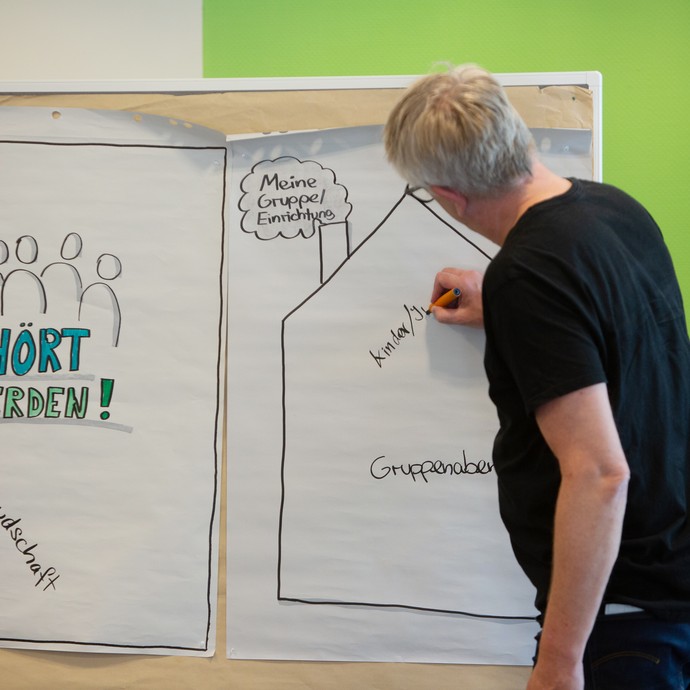 HÖRT
ERDEN!
udschaft
Meine
Gruppe/
Einrichtung
Kinder/J
Gruppenaben